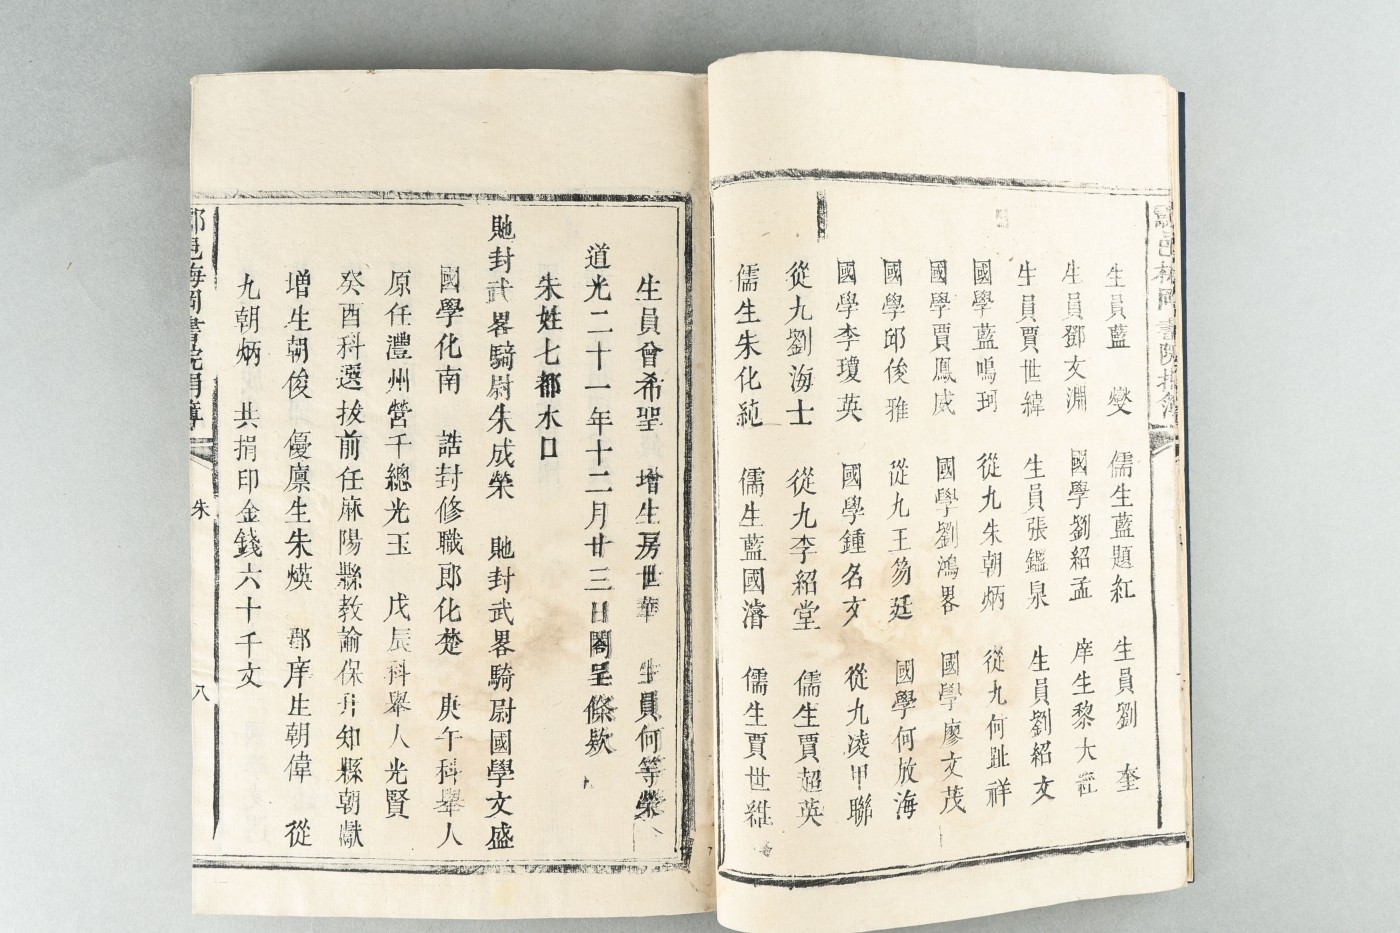 生員藍 燮 儒生藍題紅 生員劉 奎
生員鄧文淵 國學劉紹孟 庠生黎大
生員賈世緯 生員張鑑泉 生員劉紹文
國學藍鳴珂 從九朱朝炳 從九何趾祥
國學賈鳳威 國學劉鴻畧 國學廖文茂
國學邱俊雅 從九王笏廷 國學何放海
國學李瓊英 國學鍾名文 從九凌甲聯
從九劉海士 從九李紹堂 儒生賈超英
儒生朱化純 儒生藍國濬 儒生賈世
生員曾希聖 增生房世華 生員何等榮
道光二十一年十二月廿三日閤呈條欵
朱姓七都水口
貤封武畧騎尉朱成榮 貤封武畧騎尉國學文盛
國學化南 誥封修職郎化楚 庚午科舉人
原任澧州營千總光玉 戊辰科舉人光賢
癸酉科選拔前任麻陽縣教諭保升知縣朝獻
增生朝俊 優廩生朱煐 郡庠生朝偉 從
九朝炳 共捐印金錢六十千文
酃邑梅岡書院捐簿
朱
八